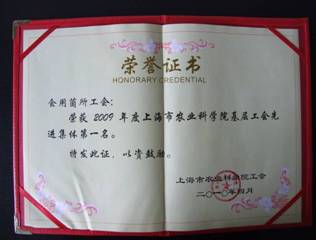 荣誉证书
HONORARY CREDENTIAL
食用菌所工会:
荣获2009年度上海市农业科学院基层工会先
进集体第一名。
特发此证,以资鼓励。
上海市农业科学院工会
二〇一〇年四月